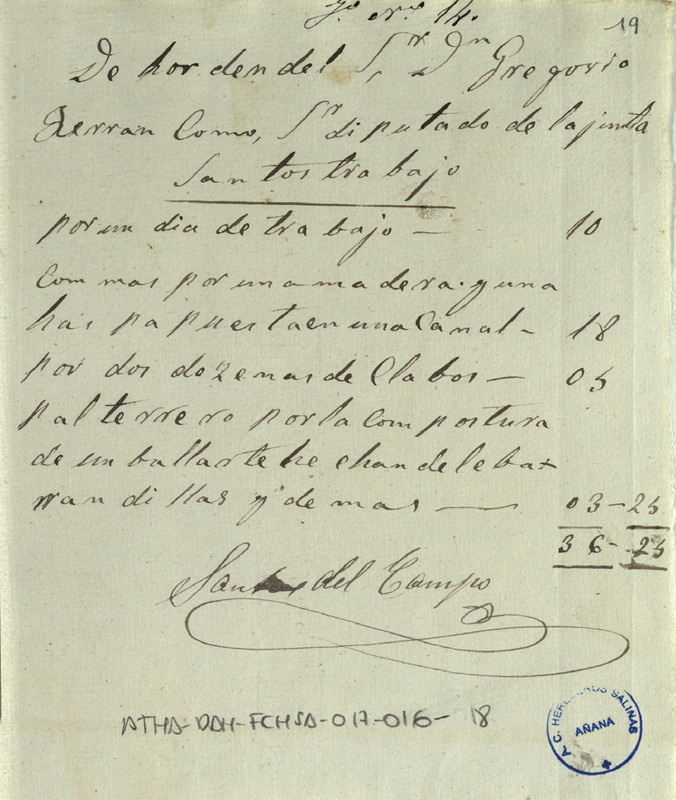 Nro. 14.
19
De hor den del Sr. Dn Gregorio
Herran Como, Sr diputado de la junta
Santos trabajo
por un dia de trabajo — 10
Com mas por una madera y una
has pa puesta en una Canal - 18
por dos dozenas de Clabos — 05
p al terrero por la Com postura
de un ballarte he chandele ba +
rran dillas y de mas — 03-25
36-25
Santos del Campo
ATHA-DAH-FCHSA-017-016- 18
A.C. HEREDEROS SALINAS
AÑANA